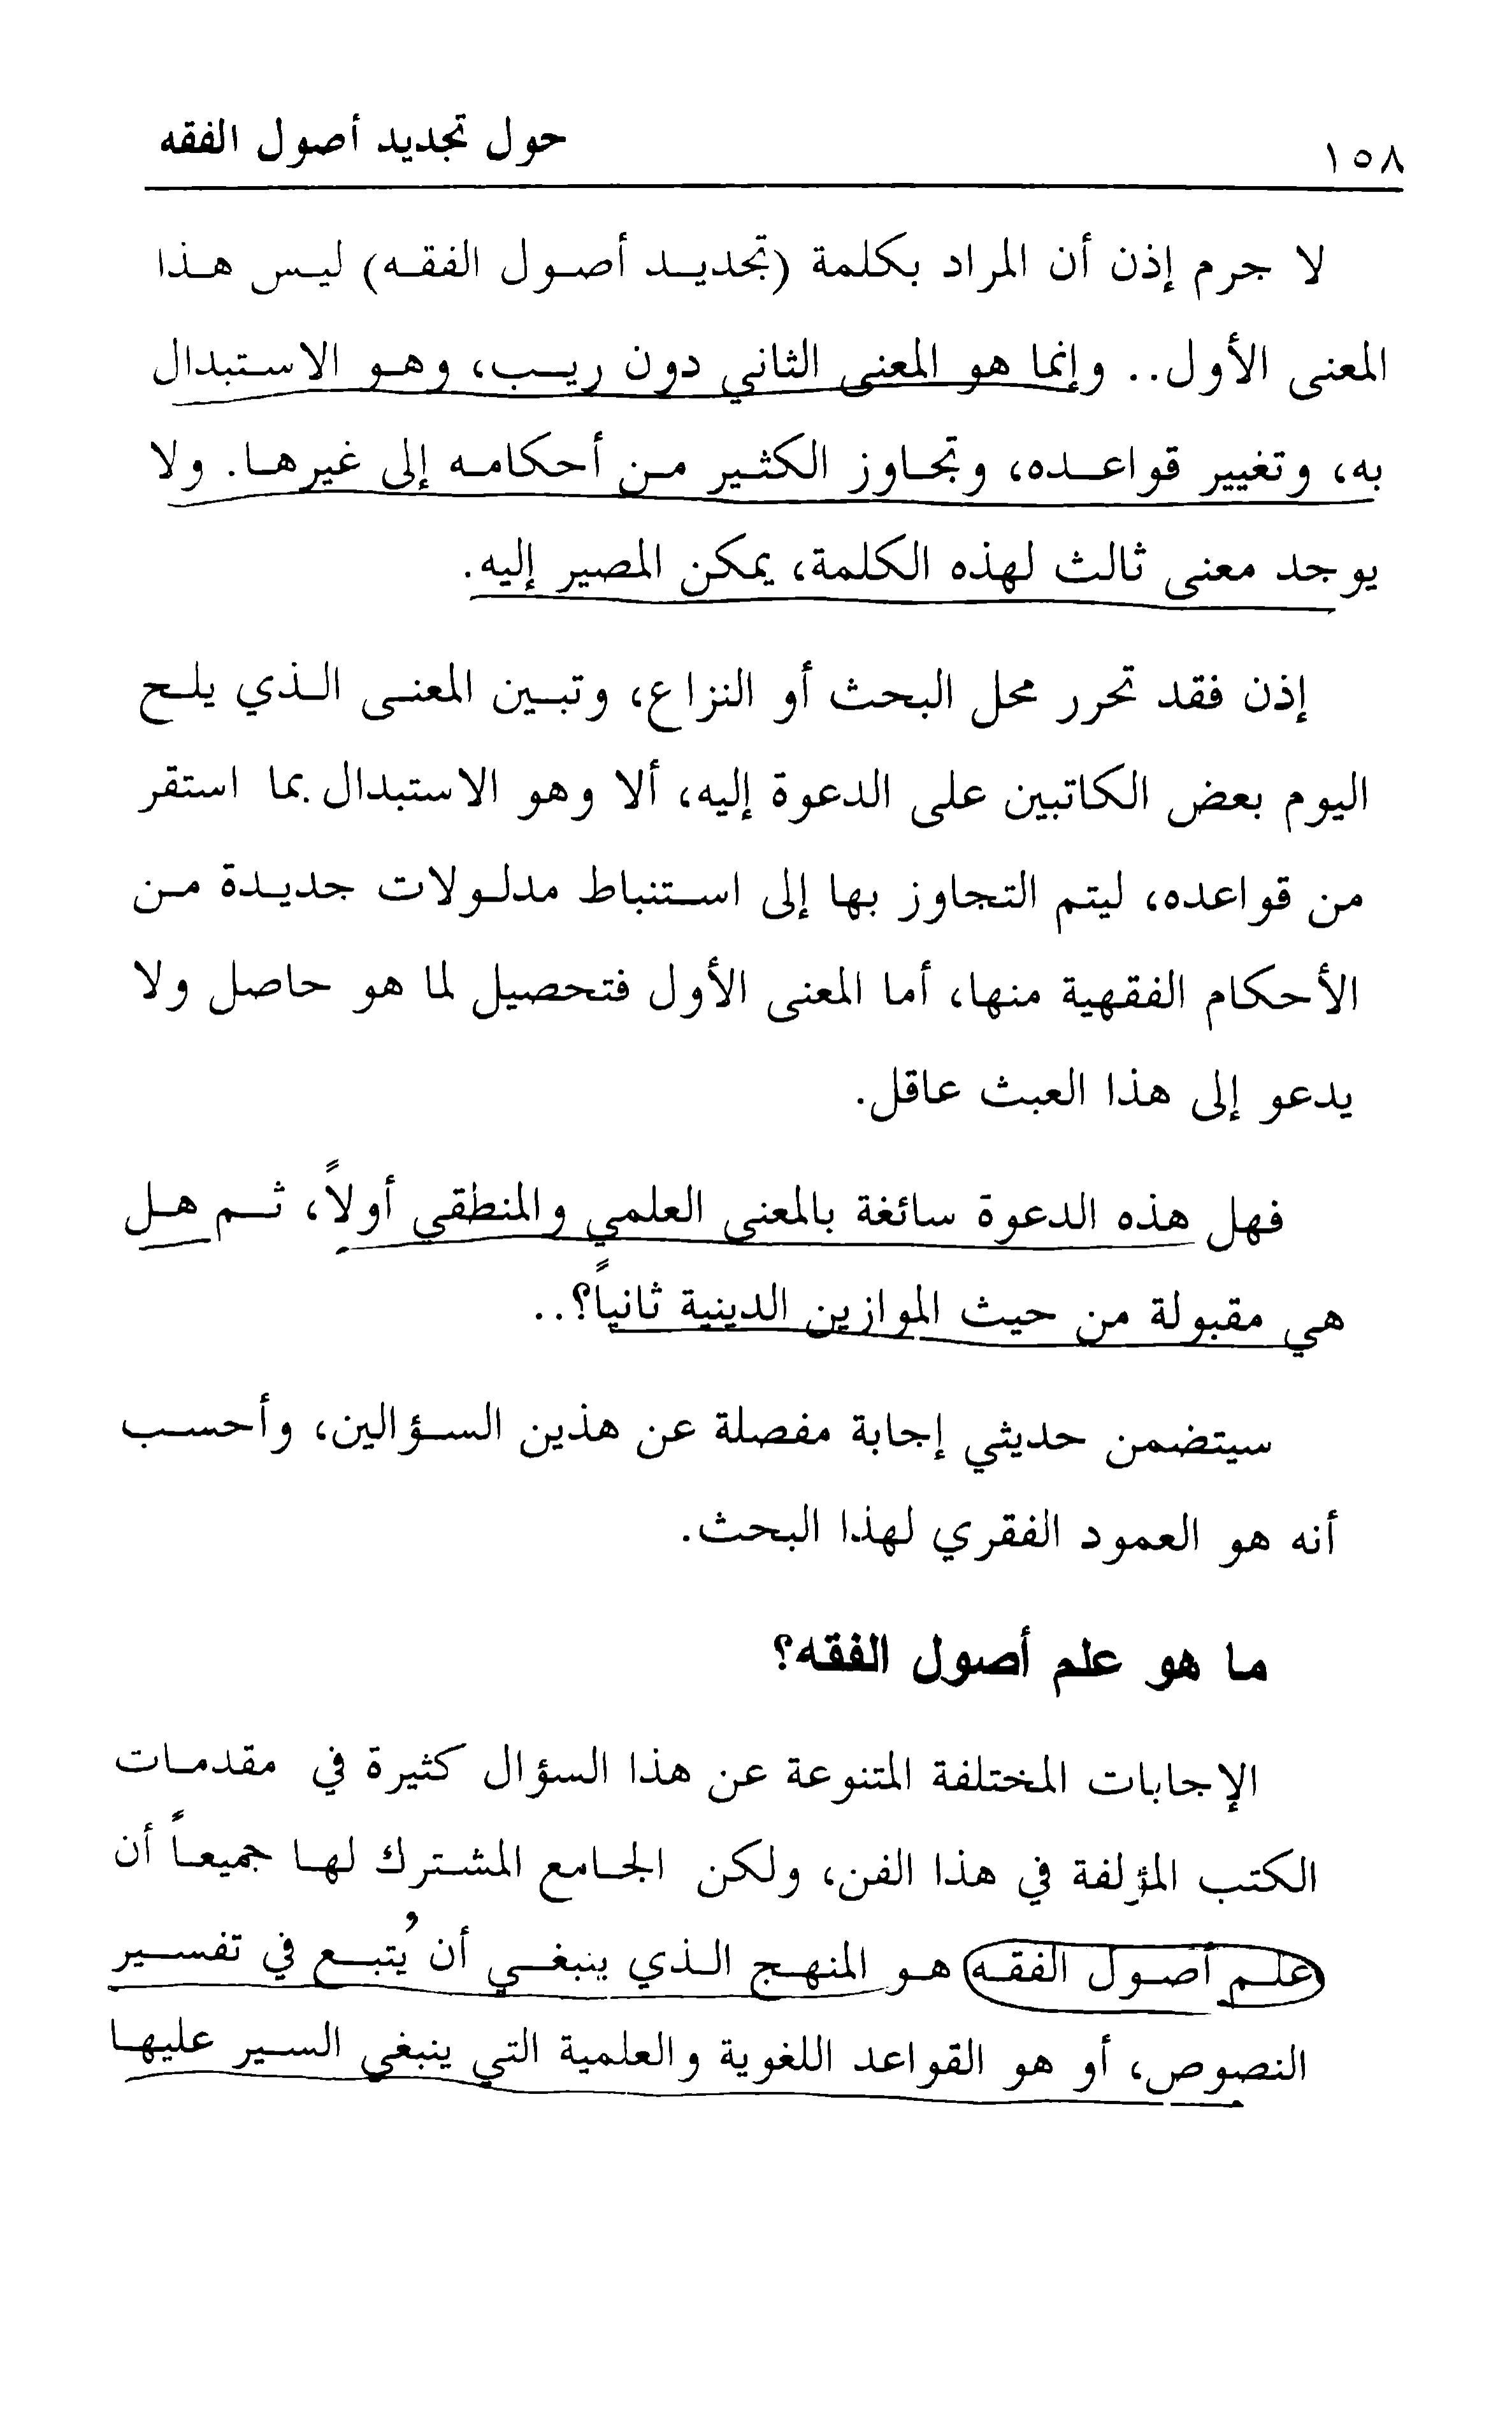 ١٥٨
حول تجديد أصول الفقه
لا جرم إذن أن المراد بكلمة (تجديد أصول الفقه) ليس هذا
المعنى الأول.. وإنما هو المعنى الثاني دون ريب، وهو الاستبدال
به، وتغيير قواعده، وتجاوز الكثير من أحكامه إلى غيرها. ولا
يوجد معنى ثالث لهذه الكلمة، يمكن المصير إليه.
إذن فقد تحرر محل البحث أو النزاع، وتبين المعنى الذي يلح
اليوم بعض الكاتبين على الدعوة إليه، ألا وهو الاستبدال بما استقر
من قواعده، ليتم التجاوز بها إلى استنباط مدلولات جديدة من
الأحكام الفقهية منها، أما المعنى الأول فتحصيل لما هو حاصل ولا
يدعو إلى هذا العبث عاقل.
فهل هذه الدعوة سائغة بالمعنى العلمي والمنطقي أولاً، ثم هل
هي مقبولة من حيث الموازين الدينية ثانياً؟..
سيتضمن حديثي إجابة مفصلة عن هذين السؤالين، وأحسب
أنه هو العمود الفقري لهذا البحث.
ما هو علم أصول الفقه؟
الإجابات المختلفة المتنوعة عن هذا السؤال كثيرة في مقدمات
الكتب المؤلفة في هذا الفن، ولكن الجامع المشترك لها جميعاً أن
علم أصول الفقه هو المنهج الذي ينبغي أن يُتبع في تفسير
النصوص، أو هو القواعد اللغوية والعلمية التي ينبغي السير عليها